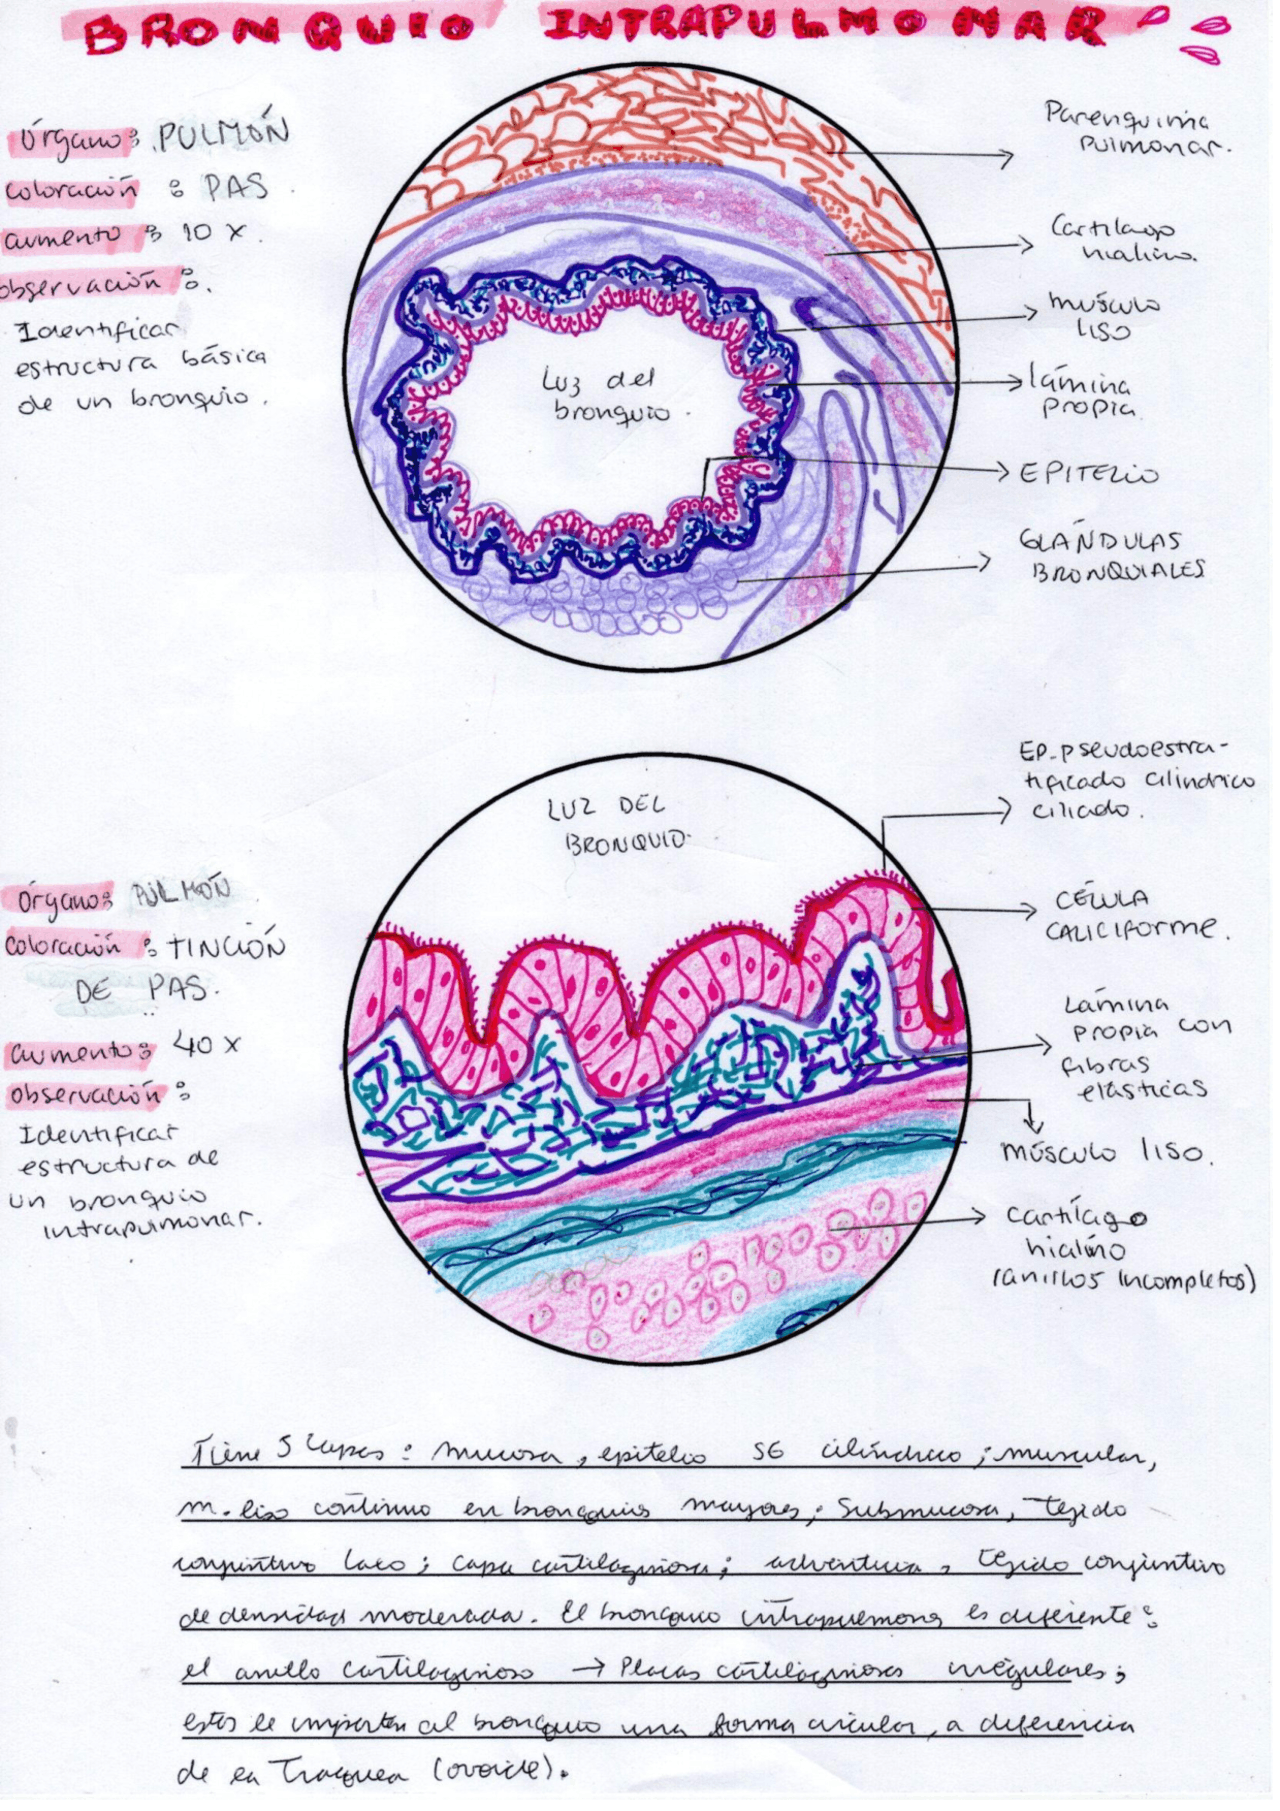 BRONQUIO INTRAPULMONAR
órgano: PULMÓN
coloración: PAS.
aumento: 10 x.
observación:.
Identificar
estructura básica
de un bronquio.
Luz del
bronquio.
Parenquima
pulmonar.
Cartilago
hialino.
músculo
liso
lámina
propia.
EPITELIO
GLÁNDULAS
BRONQUIALES
LUZ DEL
BRONQUIO.
órgano: PULMÓN
coloración: TINCIÓN
DE PAS.
aumento: 40 x
observación:
Identificar
estructura de
un bronquio
intrapulmonar.
EP. pseudoestra-
tificado cilindrico
ciliado.
CÉLULA
CALICIFORME.
Lámina
propia con
fibras
elásticas
músculo liso.
cartílago
hialino
(anillos incompletos)
Tiene 5 capas: mucosa, epitelio SE cilíndrico; muscular,
m. liso continuo en bronquios mayores; Submucosa, tejido
conjuntivo laxo; capa cartilaginosa; adventicia, tejido conjuntivo
de densidad moderada. El bronquio intrapulmonar es diferente:
el anillo cartilaginoso → Placas cartilaginosas irregulares;
estas le imparten al bronquio una forma circular, a diferencia
de la Traquea (ovoide).